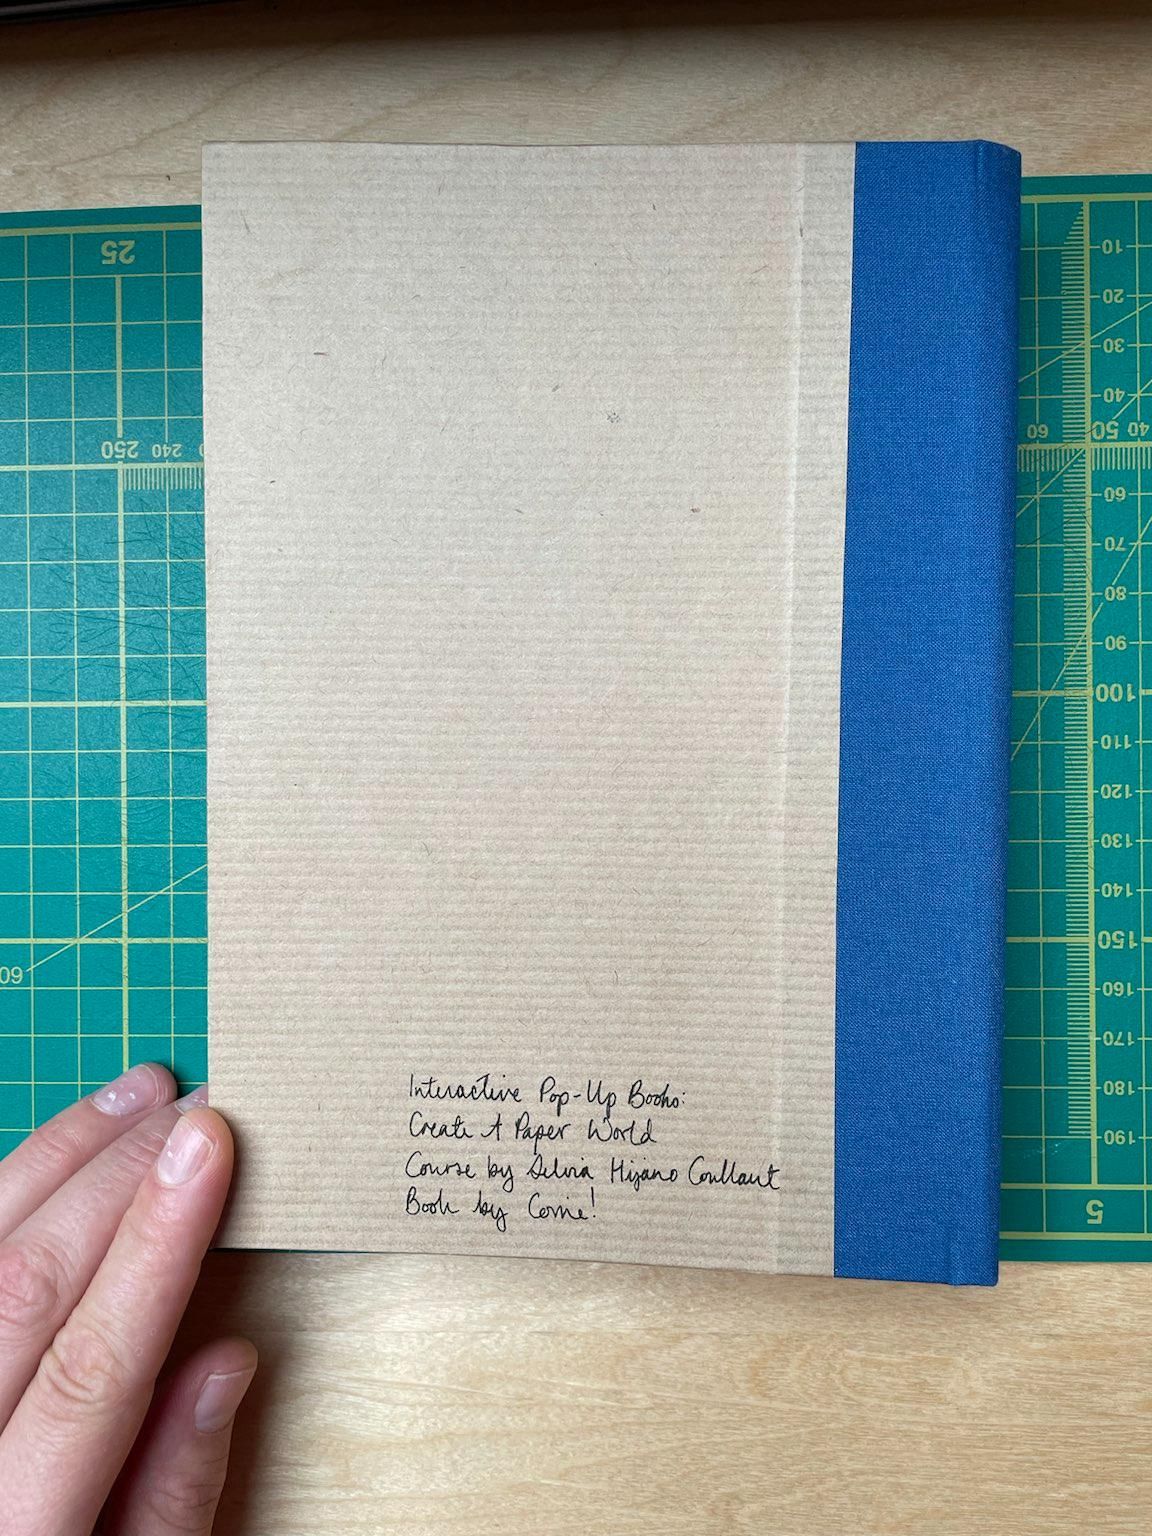 25
250 240
60
10
20
30
40
60 50 40
60
70
80
90
100
110
120
130
140
150
160
170
180
190
5
Interactive Pop-Up Books:
Create A Paper World
Course by Silvia Hijano Coullaut
Book by Corrie!